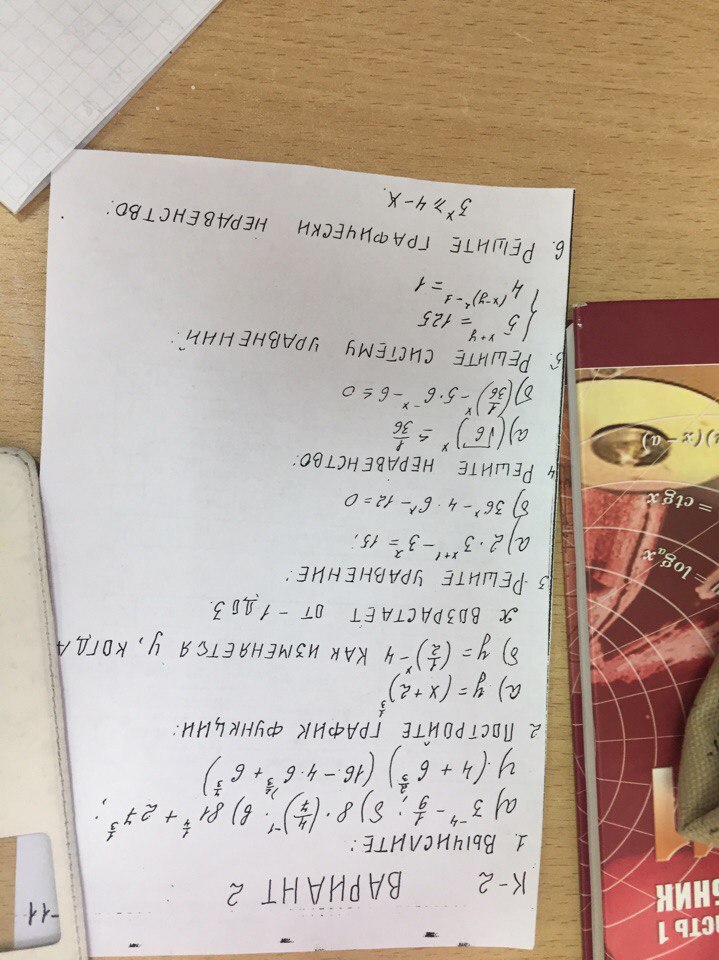 К-2 ВАРИАНТ 2
1. ВЫЧИСЛИТЕ:
а) 3⁻⁴ - 1/9; б) 8·(4/7)⁻¹; в) 81^(1/4) + 27^(1/3);
2. ПОСТРОЙТЕ ГРАФИК ФУНКЦИИ:
а) y = (x+2)^(1/3)
б) y = (1/2)ˣ - 4 КАК ИЗМЕНЯЕТСЯ y, КОГДА
x ВОЗРАСТАЕТ ОТ -1 ДО 3.
3. РЕШИТЕ УРАВНЕНИЕ:
а) 2·3ˣ⁺¹ - 3ˣ = 15;
б) 36ˣ - 4·6ˣ - 12 = 0
4. РЕШИТЕ НЕРАВЕНСТВО:
а) (√6)ˣ ≤ 1/36
б) (1/36)ˣ - 5·6⁻ˣ - 6 ≤ 0
5. РЕШИТЕ СИСТЕМУ УРАВНЕНИЙ:
{ 5ˣ⁺ʸ = 125
4^((x-y)²-1) = 1
6. РЕШИТЕ ГРАФИЧЕСКИ НЕРАВЕНСТВО:
3ˣ ≥ 4-x.
-11
= ctgx
= logₐx
СТЬ 1
БНИК